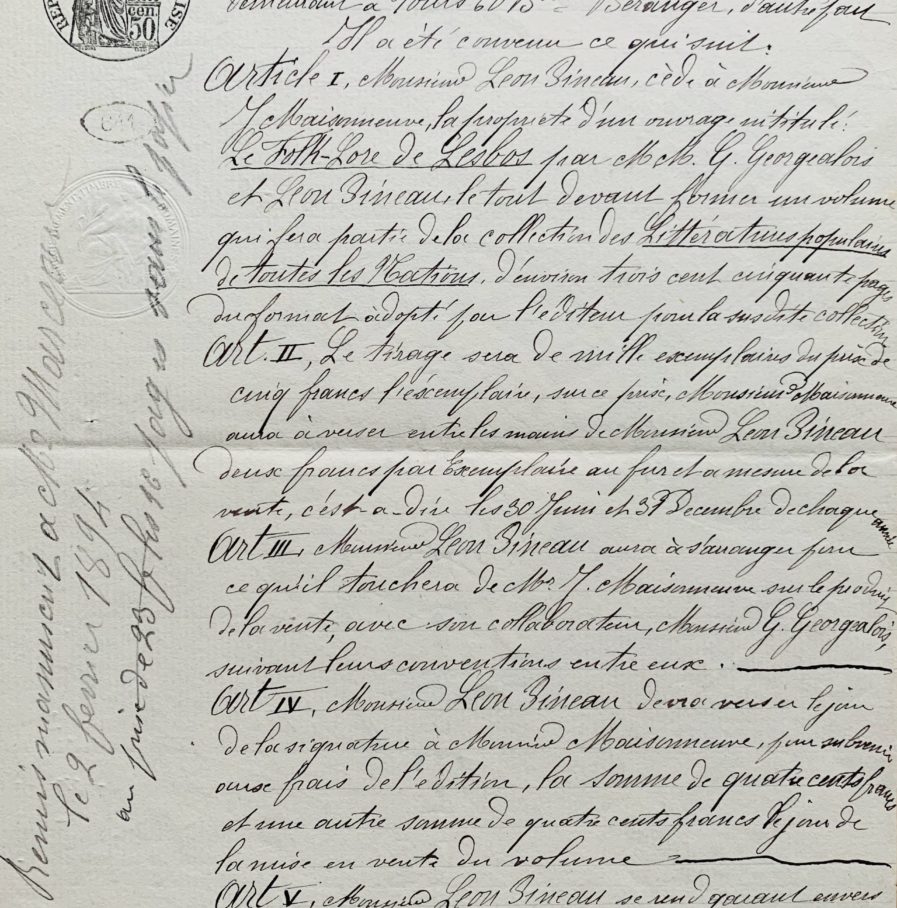 demeurant à Tours 60 Bd Béranger, d'autre part
Il a été convenu ce qui suit.
Article I, Monsieur Léon Pineau, cède à Monsieur
J Maisonneuve, la propriété d'un ouvrage intitulé:
Le Folk-Lore de Lesbos par MM. G. Georgealois
et Léon Pineau, le tout devant former un volume
qui fera partie de la collection des Littératures populaires
de toutes les Nations, d'environ trois cent cinquante pages
du format adopté par l'éditeur pour la susdite collection
Art. II, Le tirage sera de mille exemplaires du prix de
cinq francs l'exemplaire, sur ce prix, Monsieur Maisonneuve
aura à verser entre les mains de Monsieur Léon Pineau
deux francs par Exemplaire au fur et a mesure de la
vente, c'est-a-dire les 30 Juin et 31 Decembre de chaque année
Art III, Monsieur Léon Pineau aura à s'arranger pour
ce qu'il touchera de Mr. J. Maisonneuve sur le produit
de la vente, avec son collaborateur, Monsieur G. Georgealois,
suivant leurs conventions entre eux.
Art IV, Monsieur Léon Pineau devra verser le jour
de la signature à Monsieur Maisonneuve, pour subvenir
aux frais de l'édition, la somme de quatre cents francs
et une autre somme de quatre cents francs le jour de
la mise en vente du volume
Art V, Monsieur Léon Pineau se rend garant envers
Remis manuscrit a Mr
le 2 fevrier 1894
au prix de 23 f les 16 pages sans papier
REP
ISE
50